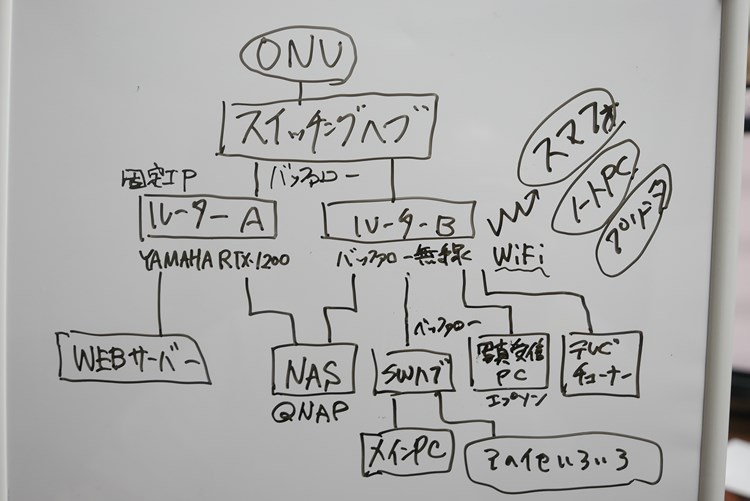 ONU
スイッチングハブ
バッファロー
固定IP
ルーターA
ルーターB
YAMAHA RTX1200
バッファロー無線
WiFi
スマフォ
ノートPC
プリンタ
WEBサーバー
NAS
QNAP
バッファロー
SWハブ
写真受信
PC
エプソン
テレビ
チューナー
メインPC
その他いろいろ